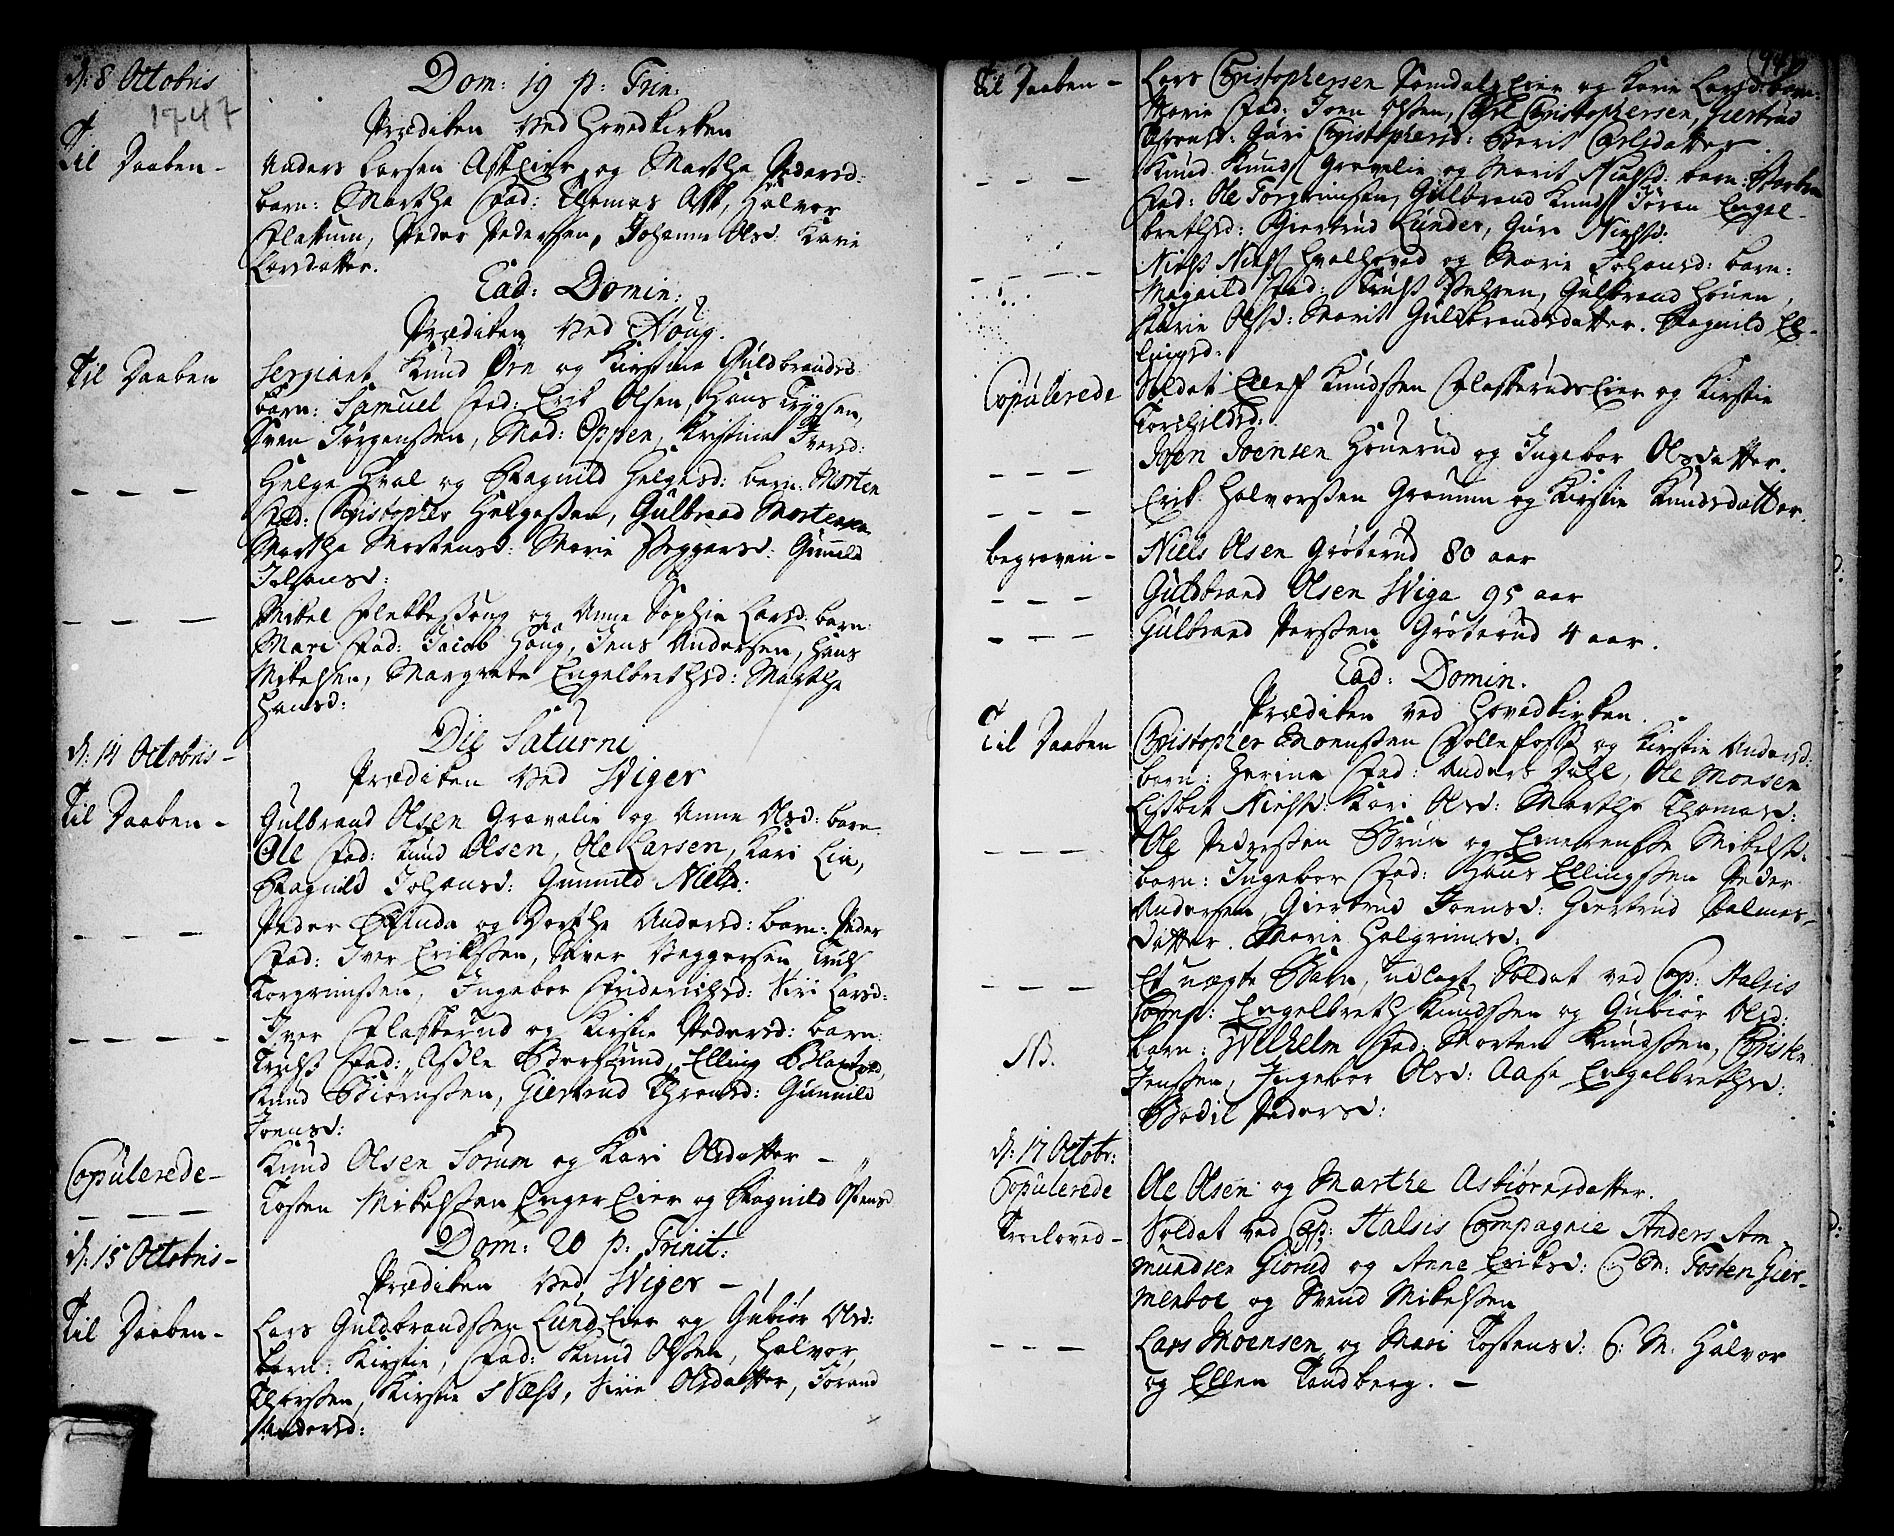 d: 8 Octobris
1747
Dom: 19 p: Trin:
Prædiken ved Hovedkirken
Til Daaben - Anders Larsen Ask Eier og Marthe Pedersd:
barn: Marthe Fad: Thomas Ask, Halvor
Flattum, Peder Pedersen, Johanne Olsd: Karie
Larsdatter.
Ead: Domin:
Prædiken ved Houg.
Til Daaben Sergiant Knud Øen og Kirstine Guldbrandsd:
barn: Samuel Fad: Erik Olsen, Hans Trygsen,
Sven Jørgenssen, Mad: Oppen, Kristine Iversd:
- - - Helge Hval og Ragnild Helgesd: barn: Morten
Fad: Christopher Helgessen, Gulbrand Mortensen
Marthe Mortensd: Marie Beggersd: Gunild
Johansd:
- - - Mikel Flekkessoug og Anne Sophie Larsd: barn:
Mari Fad: Jacob Houg, Jens Andersen, Hans
Mikelsen, Margrete Engelbrethsd: Marthe
Hansd:
d: 14 Octobris - Die Saturni
Prædiken ved Wiger
Til Daaben - Gulbrand Olsen Gravalie og Anne Olsd: barn:
Ole Fad: Knud Olsen, Ole Larsen, Kari Lie,
Ragnild Johansd: Gunnild Nielsd:
- - - Peder Rinda og Dorthe Andersd: barn: Peder
Fad: Iver Erikssen, Siver Beggersen Truls
Torgrimssen, Ingebor Friderichsd: Siri Larsd:
- - - Iver Flaskerud og Kirstie Pedersd: barn:
Trulss Fad: Asle Bersund, Elling
Knud Biørnssen, Giertrud Thronsd: Gunnild
Joensd:
Copulerede - Knud Olsen Sorum og Kari Olsdatter -
- - - Tosten Mikelssen Enger Eier og Ragnild Ostensd
d: 15 Octobris - Dom: 20 p: Trinit:
Prædiken ved Wiger -
Til Daaben - Lars Guldbrandssen Lund Eier og Gubiør Olsd:
barn: Kirstie, Fad: Knud Olssen, Halvor
Thorssen, Kirstie Næss, Sirie Olsdatter, Jorand
Andersd:
Til Daaben - Lars Christophersen Semdals Eier og Karie Larsd: barn:
Marie Fad: Joen Olssen, Carl Christophersen, Giertrud
Guri Christophersd: Berit Carlsdatter.
- - - Knud Knuds: Gravalie og Marit Nielsd: barn:
Fad: Ole Torgrimsen, Gulbrand Knuds: Jøran Engel-
brethsd: Giertrud Lunder, Guri Nielsd:
- - - Nielss Nielss: Hvalhoved og Marie Johansd: barn:
Magnild Fad: Trulss Velsen, Gulbrand Houen,
Karie Olsd: Marit Guldbrandsdatter. Ragnild El-
lingsd:
Copulerede Soldat Ellef Knudssen Flaskeruds Eier og Kirstie
Torchildsd:
- - - Joen Joensen Houerud og Ingebor Olsdatter.
- - - Erik Halvorssen Gramm og Kirstie Knudsdatter.
begraven - Niels Olsen Grøterud 80 aar
- - - Guldbrand Olsen Wiga 95 aar
- - - Gulbrand Perssen Grøterud 4 aar.
Ead: Domin.
Prædiken ved Hovedkirken.
Til Daaben Christopher Moenssen Follefoss og Kirstie Andersd:
barn: Herine Fad: Anders Dahl, Ole Monsen
Lisbet Nielsd: Kari Olsd: Marthe Thomasd:
- - - Ole Pederssen Bruun og Emerensse Mikelsd:
barn: Ingebor Fad: Hans Ellingssen Peder
Andersen, Giertrud Joensd: Giertrud Palmes-
datter. Marie Halgrimsd:
- - - Et uægte Barn, udlagt Soldat ved Cap: Stalsis
Comp: Engelbreth Knudssen og Gubiør Olsd:
NB. barn: Wilhelm Fad: Morten Knudssen, Christen
Jenssen, Ingebor Olsd: Aase Engelbrethsd:
Bodil Pedersd:
d: 17 Octobr:
Copulerede Ole Olsen og Marthe Asbiørnsdatter.
Troeloved - Soldat ved Cap: Stalsis Compagnie Anders Am-
mundsen Giørud og Anne Eriksd: C: M: Tosten Gier-
menboe og Svend Mikelssen
- - - Lars Moensen og Mari Tostensd: C: M: Halvor
og Ellen Tandberg. -